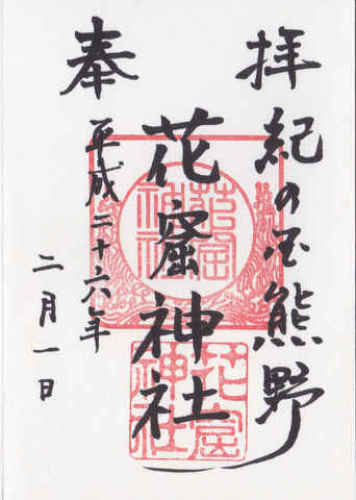 拝
紀の国熊野
花窟神社
奉
平成二十六年
二月一日
花窟
神社
花窟
神社